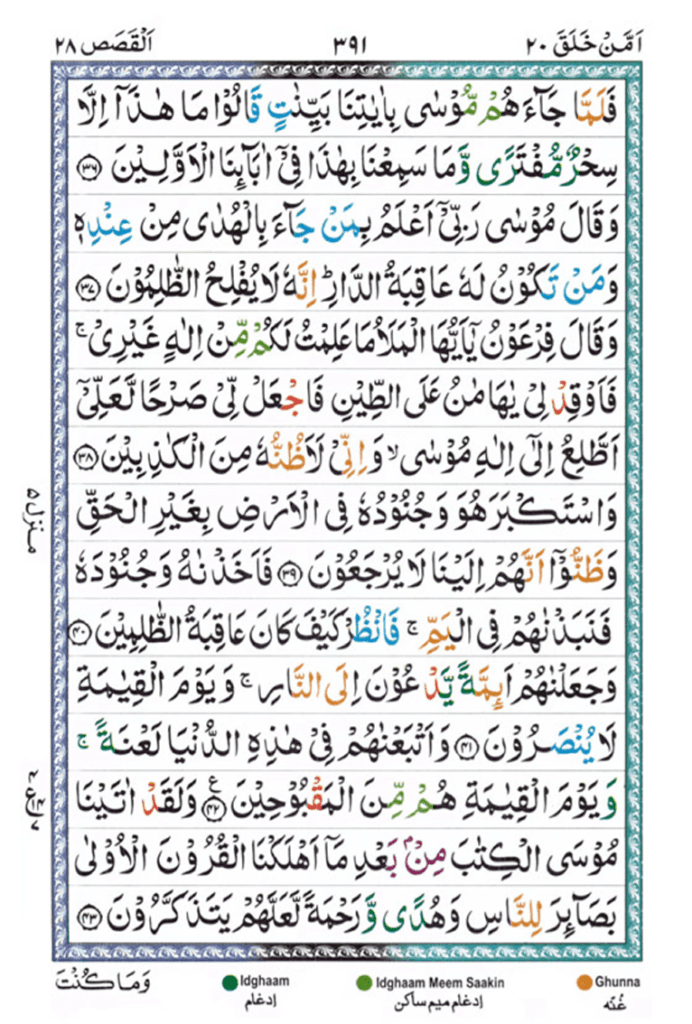 اَمَّنْ خَلَقَ ٢٠ ٣٩١ اَلْقَصَص ٢٨
فَلَمَّا جَآءَهُمْ مُّوْسٰى بِاٰيٰتِنَا بَيِّنٰتٍ قَالُوْا مَا هٰذَاۤ اِلَّا
سِحْرٌ مُّفْتَرًى وَّمَا سَمِعْنَا بِهٰذَا فِيْۤ اٰبَآىِٕنَا الْاَوَّلِيْنَ ﴿٣٦﴾
وَقَالَ مُوْسٰى رَبِّيْۤ اَعْلَمُ بِمَنْ جَآءَ بِالْهُدٰى مِنْ عِنْدِهٖ
وَمَنْ تَكُوْنُ لَهٗ عَاقِبَةُ الدَّارِ ؕ اِنَّهٗ لَا يُفْلِحُ الظّٰلِمُوْنَ ﴿٣٧﴾
وَقَالَ فِرْعَوْنُ يٰۤاَيُّهَا الْمَلَاُ مَا عَلِمْتُ لَكُمْ مِّنْ اِلٰهٍ غَيْرِيْ ۚ
فَاَوْقِدْ لِيْ يٰهَامٰنُ عَلَى الطِّيْنِ فَاجْعَلْ لِّيْ صَرْحًا لَّعَلِّيْۤ
اَطَّلِعُ اِلٰۤى اِلٰهِ مُوْسٰى ۙ وَاِنِّيْ لَاَظُنُّهٗ مِنَ الْكٰذِبِيْنَ ﴿٣٨﴾
وَاسْتَكْبَرَ هُوَ وَجُنُوْدُهٗ فِى الْاَرْضِ بِغَيْرِ الْحَقِّ
وَظَنُّوْۤا اَنَّهُمْ اِلَيْنَا لَا يُرْجَعُوْنَ ﴿٣٩﴾ فَاَخَذْنٰهُ وَجُنُوْدَهٗ
فَنَبَذْنٰهُمْ فِى الْيَمِّ ۚ فَانْظُرْ كَيْفَ كَانَ عَاقِبَةُ الظّٰلِمِيْنَ ﴿٤٠﴾
وَجَعَلْنٰهُمْ اَىِٕمَّةً يَّدْعُوْنَ اِلَى النَّارِ ۚ وَيَوْمَ الْقِيٰمَةِ
لَا يُنْصَرُوْنَ ﴿٤١﴾ وَاَتْبَعْنٰهُمْ فِيْ هٰذِهِ الدُّنْيَا لَعْنَةً ۚ
وَيَوْمَ الْقِيٰمَةِ هُمْ مِّنَ الْمَقْبُوْحِيْنَ ﴿٤٢﴾ ع وَلَقَدْ اٰتَيْنَا
مُوْسَى الْكِتٰبَ مِنْۢ بَعْدِ مَاۤ اَهْلَكْنَا الْقُرُوْنَ الْاُوْلٰى
بَصَآىِٕرَ لِلنَّاسِ وَهُدًى وَّرَحْمَةً لَّعَلَّهُمْ يَتَذَكَّرُوْنَ ﴿٤٣﴾
منزل ٥
Ghunna Idghaam Meem Saakin Idghaam وَمَا كُنْتَ
غُنّه إدغام ميم ساكن إدغام